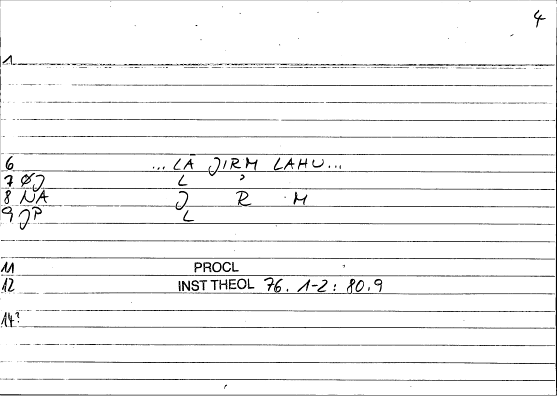 4
1
6 ... LĀ JIRM LAHU...
7 ØJ L ʾ
8 NA J R M
9 JP L
11 PROCL
12 INST THEOL 76. 1-2 : 80.9
14?